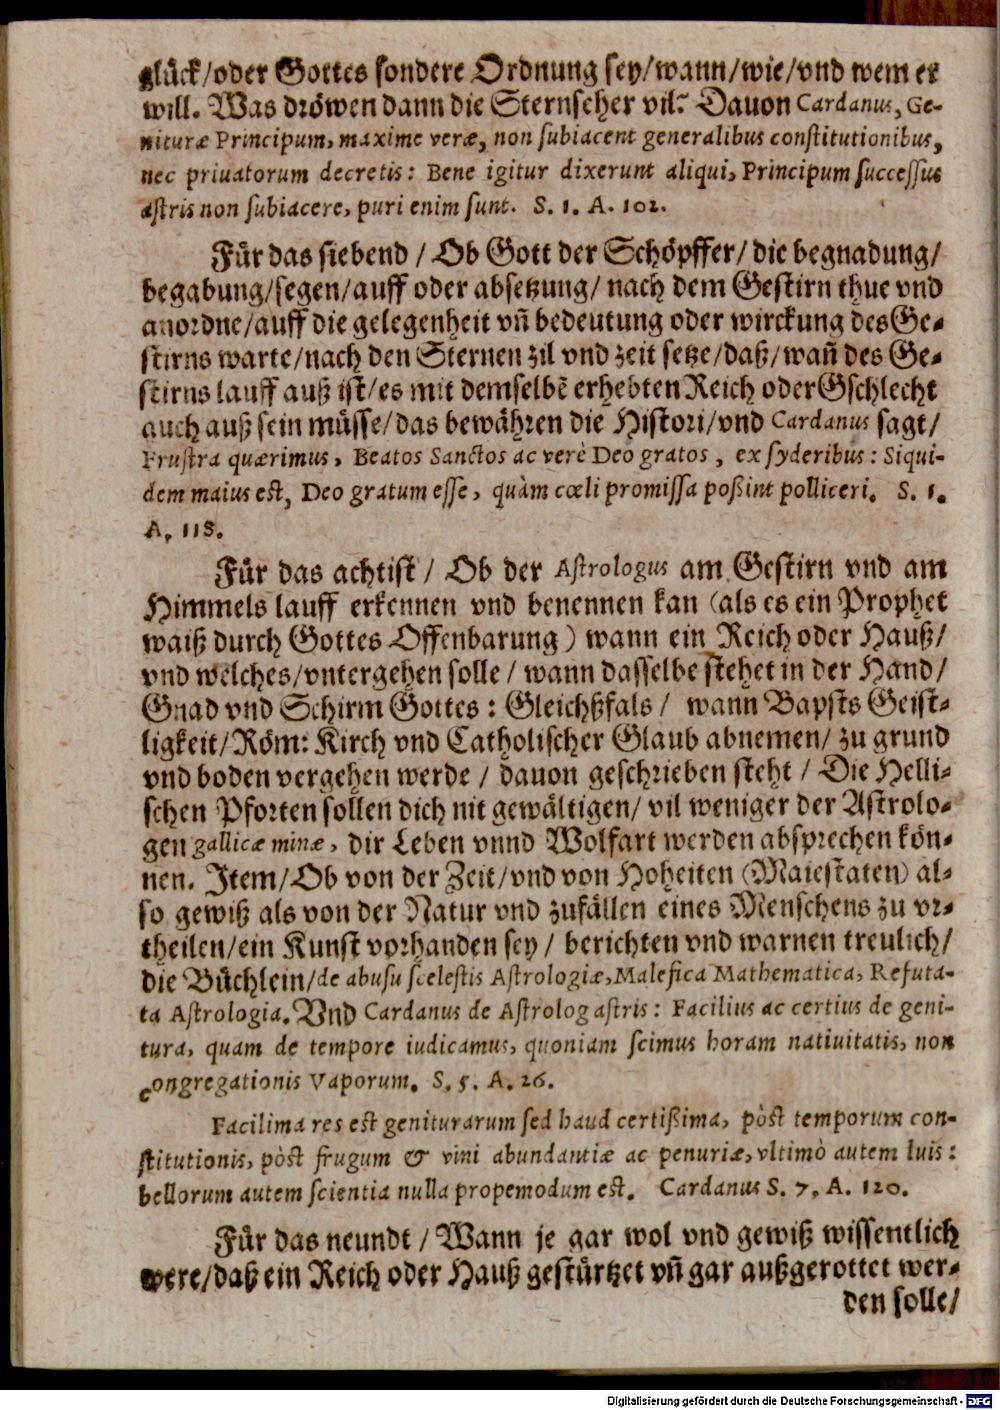 glück/oder Gottes sondere Ordnung sey/wann/wie/vnd wem er
will. Was dröwen dann die Sternseher vil? Dauon Cardanus, Ge-
nituræ Principum, maxime veræ, non subiacent generalibus constitutionibus,
nec priuatorum decretis: Bene igitur dixerunt aliqui, Principum successus
astris non subiacere, puri enim sunt. S. 1. A. 102.
Für das siebend / Ob Gott der Schöpffer/ die begnadung/
begabung/segen/auff oder absetzung/ nach dem Gestirn thue vnd
anordne/auff die gelegenheit vñ bedeutung oder wirckung des Ge-
stirns warte/nach den Sternen zil vnd zeit setze/daß/wañ des Ge-
stirns lauff auß ist/es mit demselbẽ erhebten Reich oder Gschlecht
auch auß sein müsse/das bewähren die Histori/vnd Cardanus sagt/
Frustra quærimus, Beatos Sanctos ac verè Deo gratos, ex syderibus: Siqui-
dem maius est, Deo gratum esse, quàm cœli promissa poßint polliceri. S. 1.
A. 118.
Für das achtist/ Ob der Astrologus am Gestirn vnd am
Himmels lauff erkennen vnd benennen kan (als es ein Prophet
waiß durch Gottes Offenbarung) wann ein Reich oder Hauß/
vnd welches/vntergehen solle / wann dasselbe stehet in der Hand/
Gnad vnd Schirm Gottes: Gleichßfals/ wann Bapsts Geist-
ligkeit/Röm: Kirch vnd Catholischer Glaub abnemen/ zu grund
vnd boden vergehen werde / dauon geschrieben steht / Die Helli-
schen Pforten sollen dich nit gewältigen/ vil weniger der Astrolo-
gen gallicæ minæ, dir Leben vnnd Wolfart werden absprechen kön-
nen. Item/Ob von der Zeit/vnd von Hoheiten (Maiestaten) al-
so gewiß als von der Natur vnd zufällen eines Menschens zu vr-
theilen/ein Kunst vorhanden sey / berichten vnd warnen treulich/
die Büchlein/de abusu scelestis Astrologiæ, Malefica Mathematica, Refuta-
ta Astrologia. Vnd Cardanus de Astrolog astris: Facilius ac certius de geni-
tura, quam de tempore iudicamus, quoniam scimus horam natiuitatis, non
congregationis Vaporum. S. 5. A. 26.
Facilima res est geniturarum sed haud certißima, pòst temporum con-
stitutionis, pòst frugum & vini abundantiæ ac penuriæ, vltimò autem luis:
bellorum autem scientia nulla propemodum est. Cardanus S. 7. A. 120.
Für das neundt / Wann je gar wol vnd gewiß wissentlich
were/daß ein Reich oder Hauß gestürtzet vñ gar außgerottet wer-
den solle/
Digitalisierung gefördert durch die Deutsche Forschungsgemeinschaft - DFG